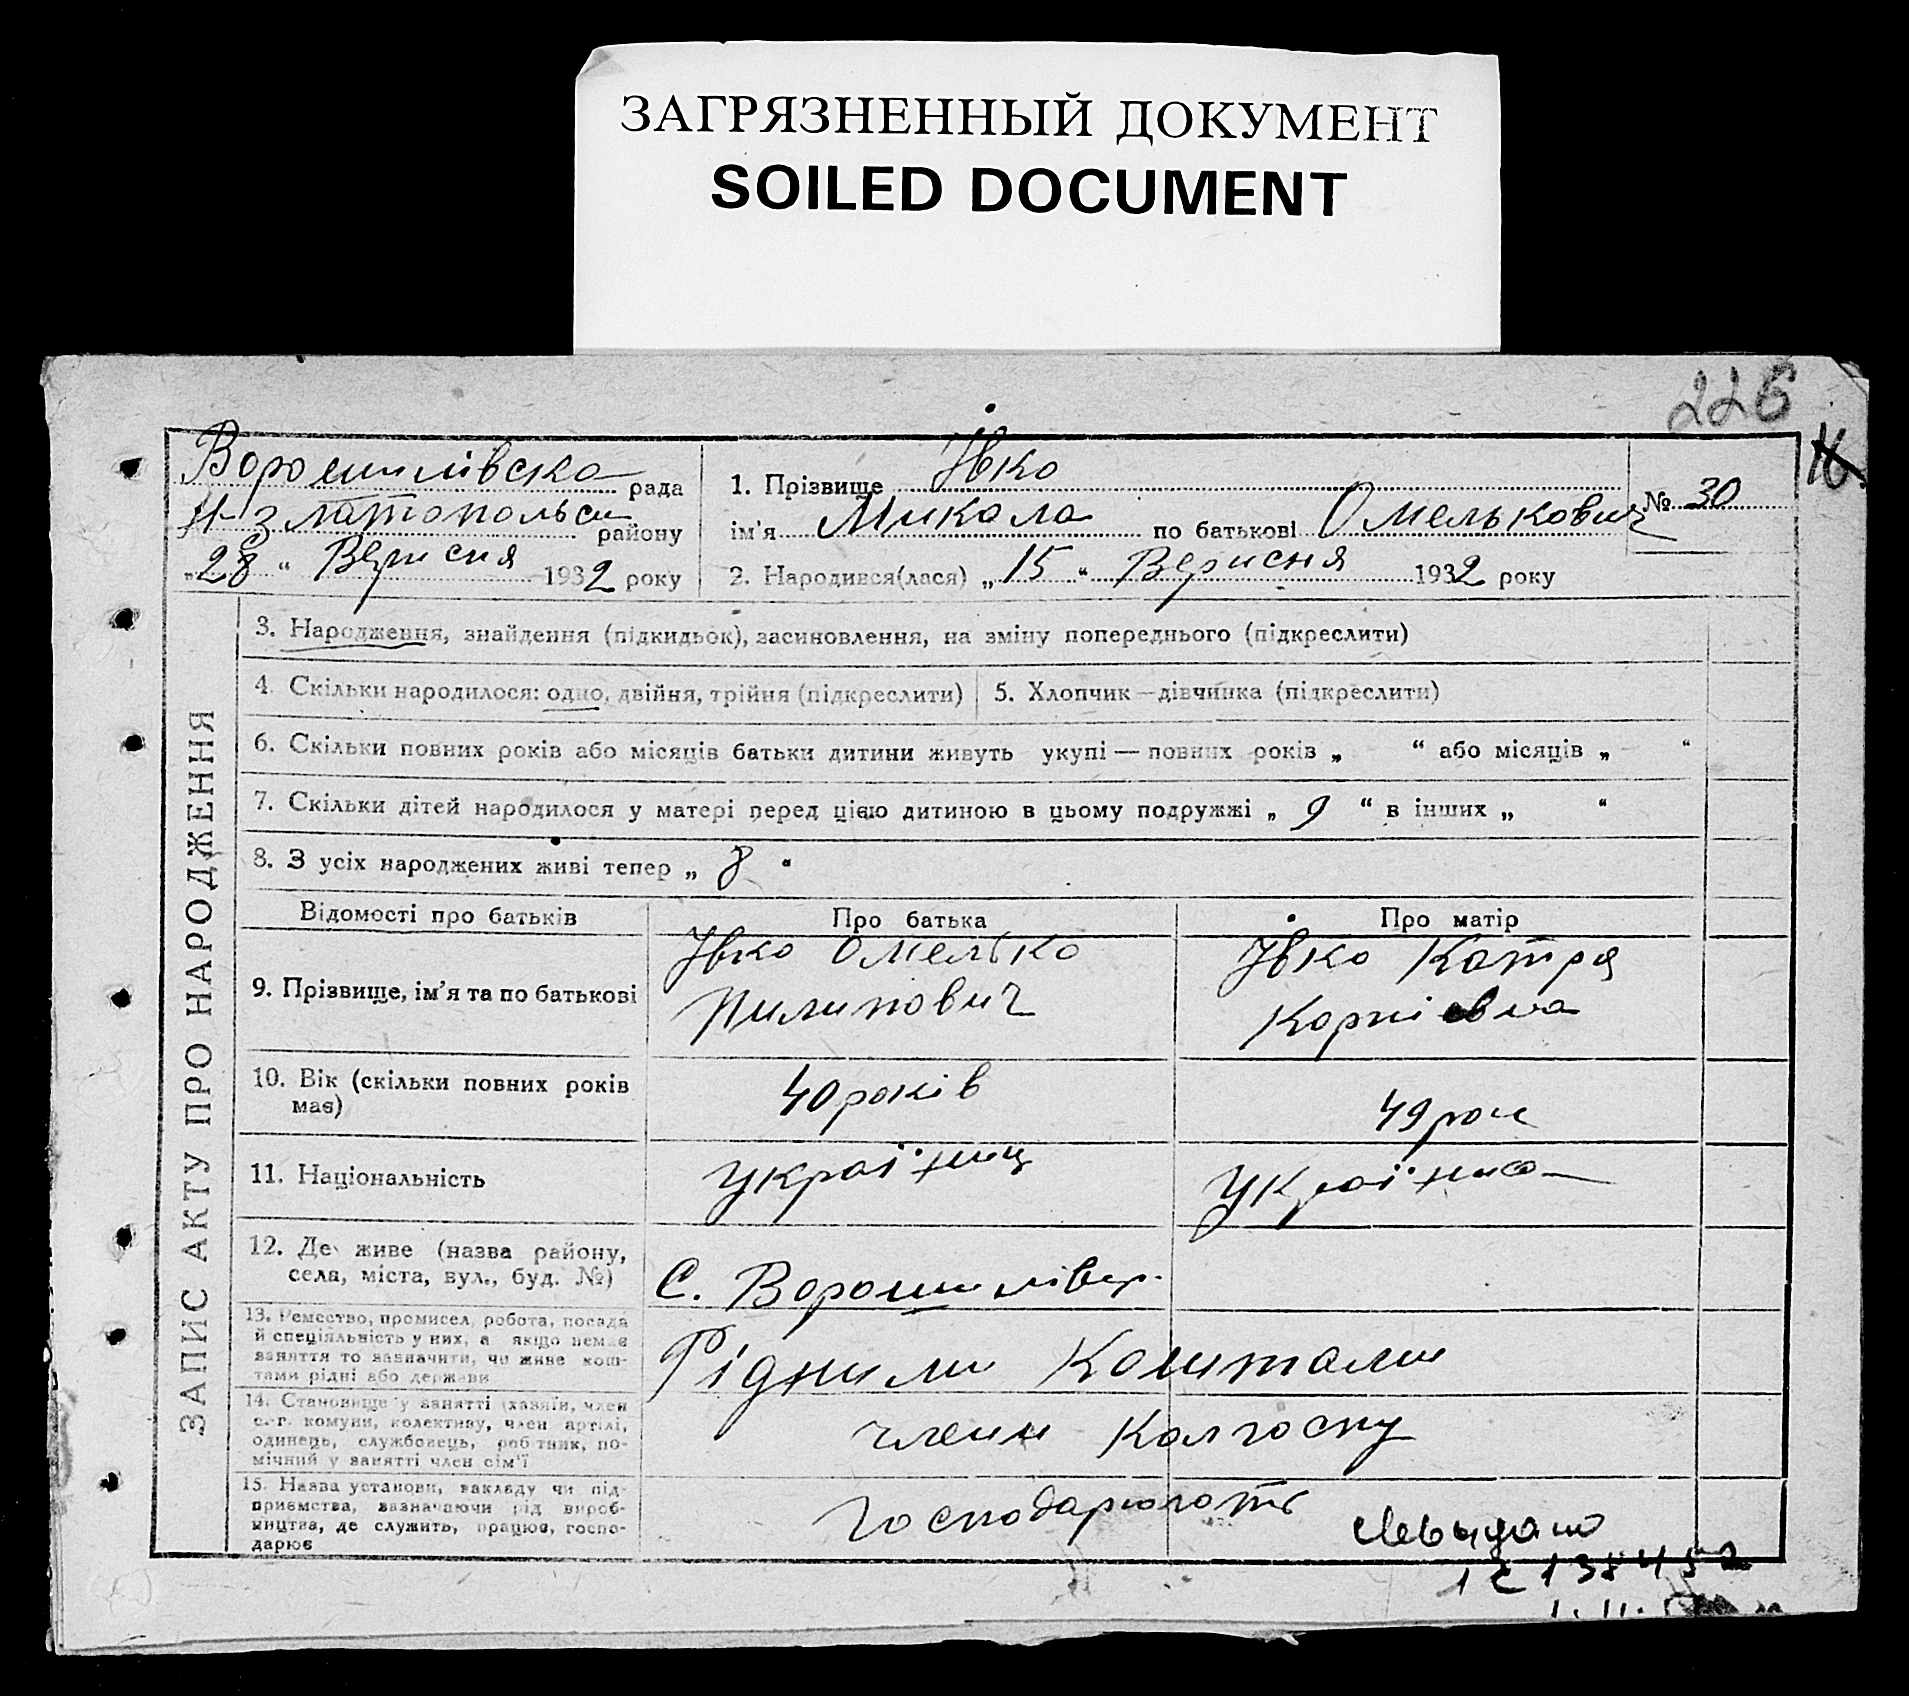 ЗАГРЯЗНЕННЫЙ ДОКУМЕНТ
SOILED DOCUMENT
226
Ворошилівська рада
Н-Златопольськ району
„28“ Вересня 1932 року
1. Прізвище Івко
ім’я Микола по батькові Омелькович
№ 30
2. Народився(лася) „15“ Вересня 1932 року
ЗАПИС АКТУ ПРО НАРОДЖЕННЯ
3. Народження, знайдення (підкидьок), засиновлення, на зміну попереднього (підкреслити)
4. Скільки народилося: одно, двійня, трійня (підкреслити)
5. Хлопчик—дівчинка (підкреслити)
6. Скільки повних років або місяців батьки дитини живуть укупі — повних років „ “ або місяців „ “
7. Скільки дітей народилося у матері перед цією дитиною в цьому подружжі „ 9 “ в інших „ “
8. З усіх народжених живі тепер „ 8 “
Відомості про батьків
Про батька
Про матір
9. Прізвище, ім’я та по батькові
Івко Омелько
Пилипович
Івко Катря
Корніевна
10. Вік (скільки повних років
має)
40 років
49 рок
11. Національність
Українц
Українка
12. Де живе (назва району,
села, міста, вул., буд. №)
С. Ворошилівц.
13. Ремество, промисел, робота, посада
й спеціяльність у них, а якщо немає
заняття то зазначити, чи живе кош-
тами рідні або держави
Рідними Коштами
14. Становище у занятті (хазяїн, член
с.-г. комуни, колективу, член артілі,
одинець, службовець, робітник, по-
мічний у занятті член сім’ї
члени Колгоспу
15. Назва установи, закладу чи під-
приємства, зазначаючи рід вироб-
ництва, де служить, працює, госпо-
дарює
Господарюють